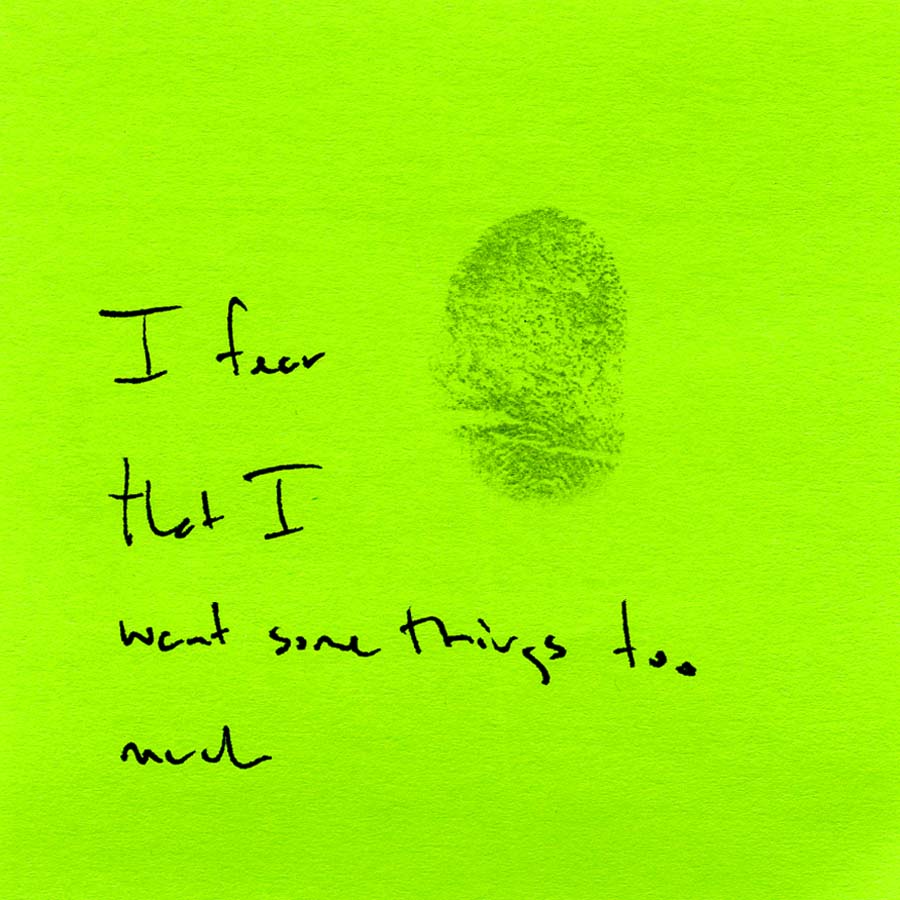 I fear
that I
want some things too
much